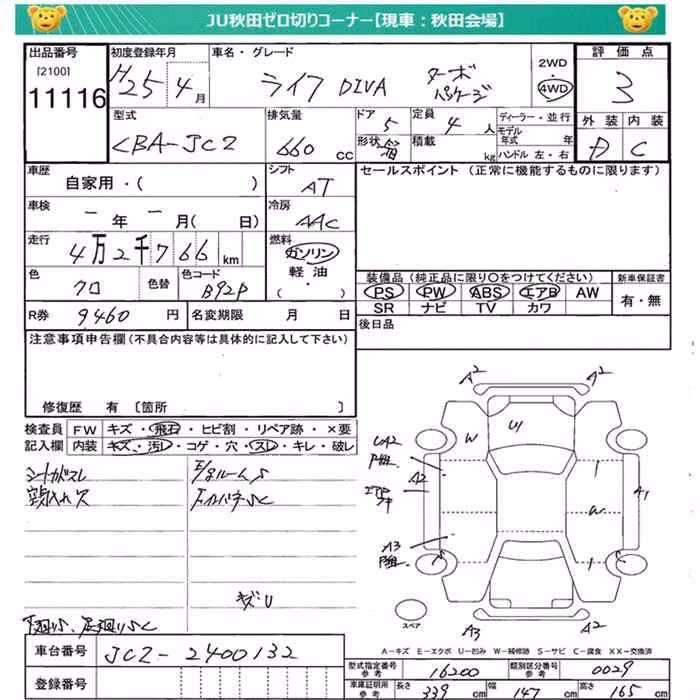 JU秋田ゼロ切りコーナー【現車：秋田会場】
出品番号 初度登録年月 車名・グレード 2WD・4WD 評価点
[2100]
11116 H25 4月 ライフ DIVA ターボパッケージ 3
型式 排気量 ドア 定員 ディーラー・並行 外装 内装
CBA-JC2 660 CC 5 4人 モデル年式 年 D C
形状 箱 積載 kg ハンドル 左・右
車歴 シフト セールスポイント（正常に機能するものに限ります）
自家用・( ) AT
車検 冷房
ー年ー月( 日) AAC
走行 燃料
4万2千766km ガソリン
軽油・( )
色 色替 色コード 装備品（純正品に限り○をつけてください） 新車保証書
クロ B92P PS PW ABS エアB AW 有・無
SR ナビ TV カワ
R券 9460円 名変期限 月 日 後日品
注意事項申告欄（不具合内容等は具体的に記入して下さい）
修復歴 有 〔箇所 〕
検査員 FW キズ・飛石・ヒビ割・リペア跡・×要
記入欄 内装 キズ・汚レ・コゲ・穴・スレ・キレ・破レ
A2 A2
W U1
A2 A1
W
A3
キズU
スペア A3 A2
A－キズ E－エクボ U－凹み W－補修跡 S－サビ C－腐食 XX－交換済
車台番号 JC2-2400132
型式指定番号 参考 16200 類別区分番号 参考 0029
登録番号
車庫証明用 参考 長さ 339cm 幅 147cm 高さ 165cm